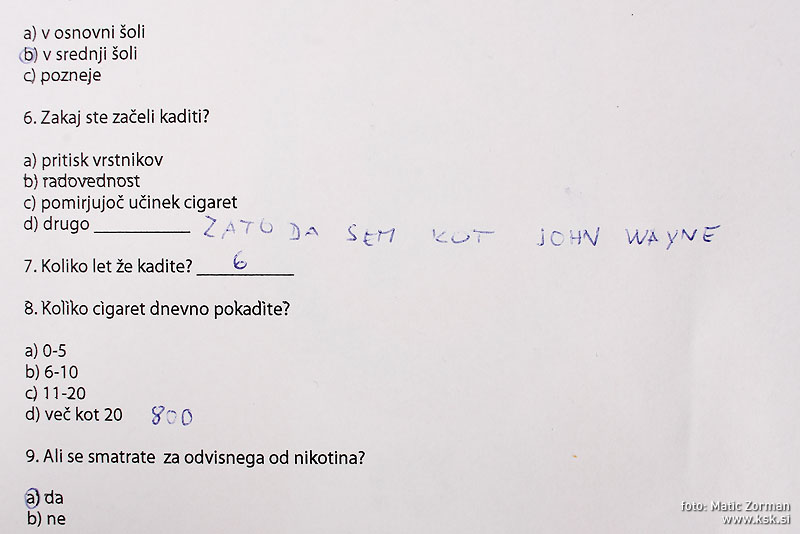 a) v osnovni šoli
b) v srednji šoli
c) pozneje
6. Zakaj ste začeli kaditi?
a) pritisk vrstnikov
b) radovednost
c) pomirjujoč učinek cigaret
d) drugo __________ ZATO DA SEM KOT JOHN WAYNE
7. Koliko let že kadite? __________ 6
8. Koliko cigaret dnevno pokadite?
a) 0-5
b) 6-10
c) 11-20
d) več kot 20 800
9. Ali se smatrate za odvisnega od nikotina?
a) da
b) ne
foto: Matic Zorman
www.ksk.si